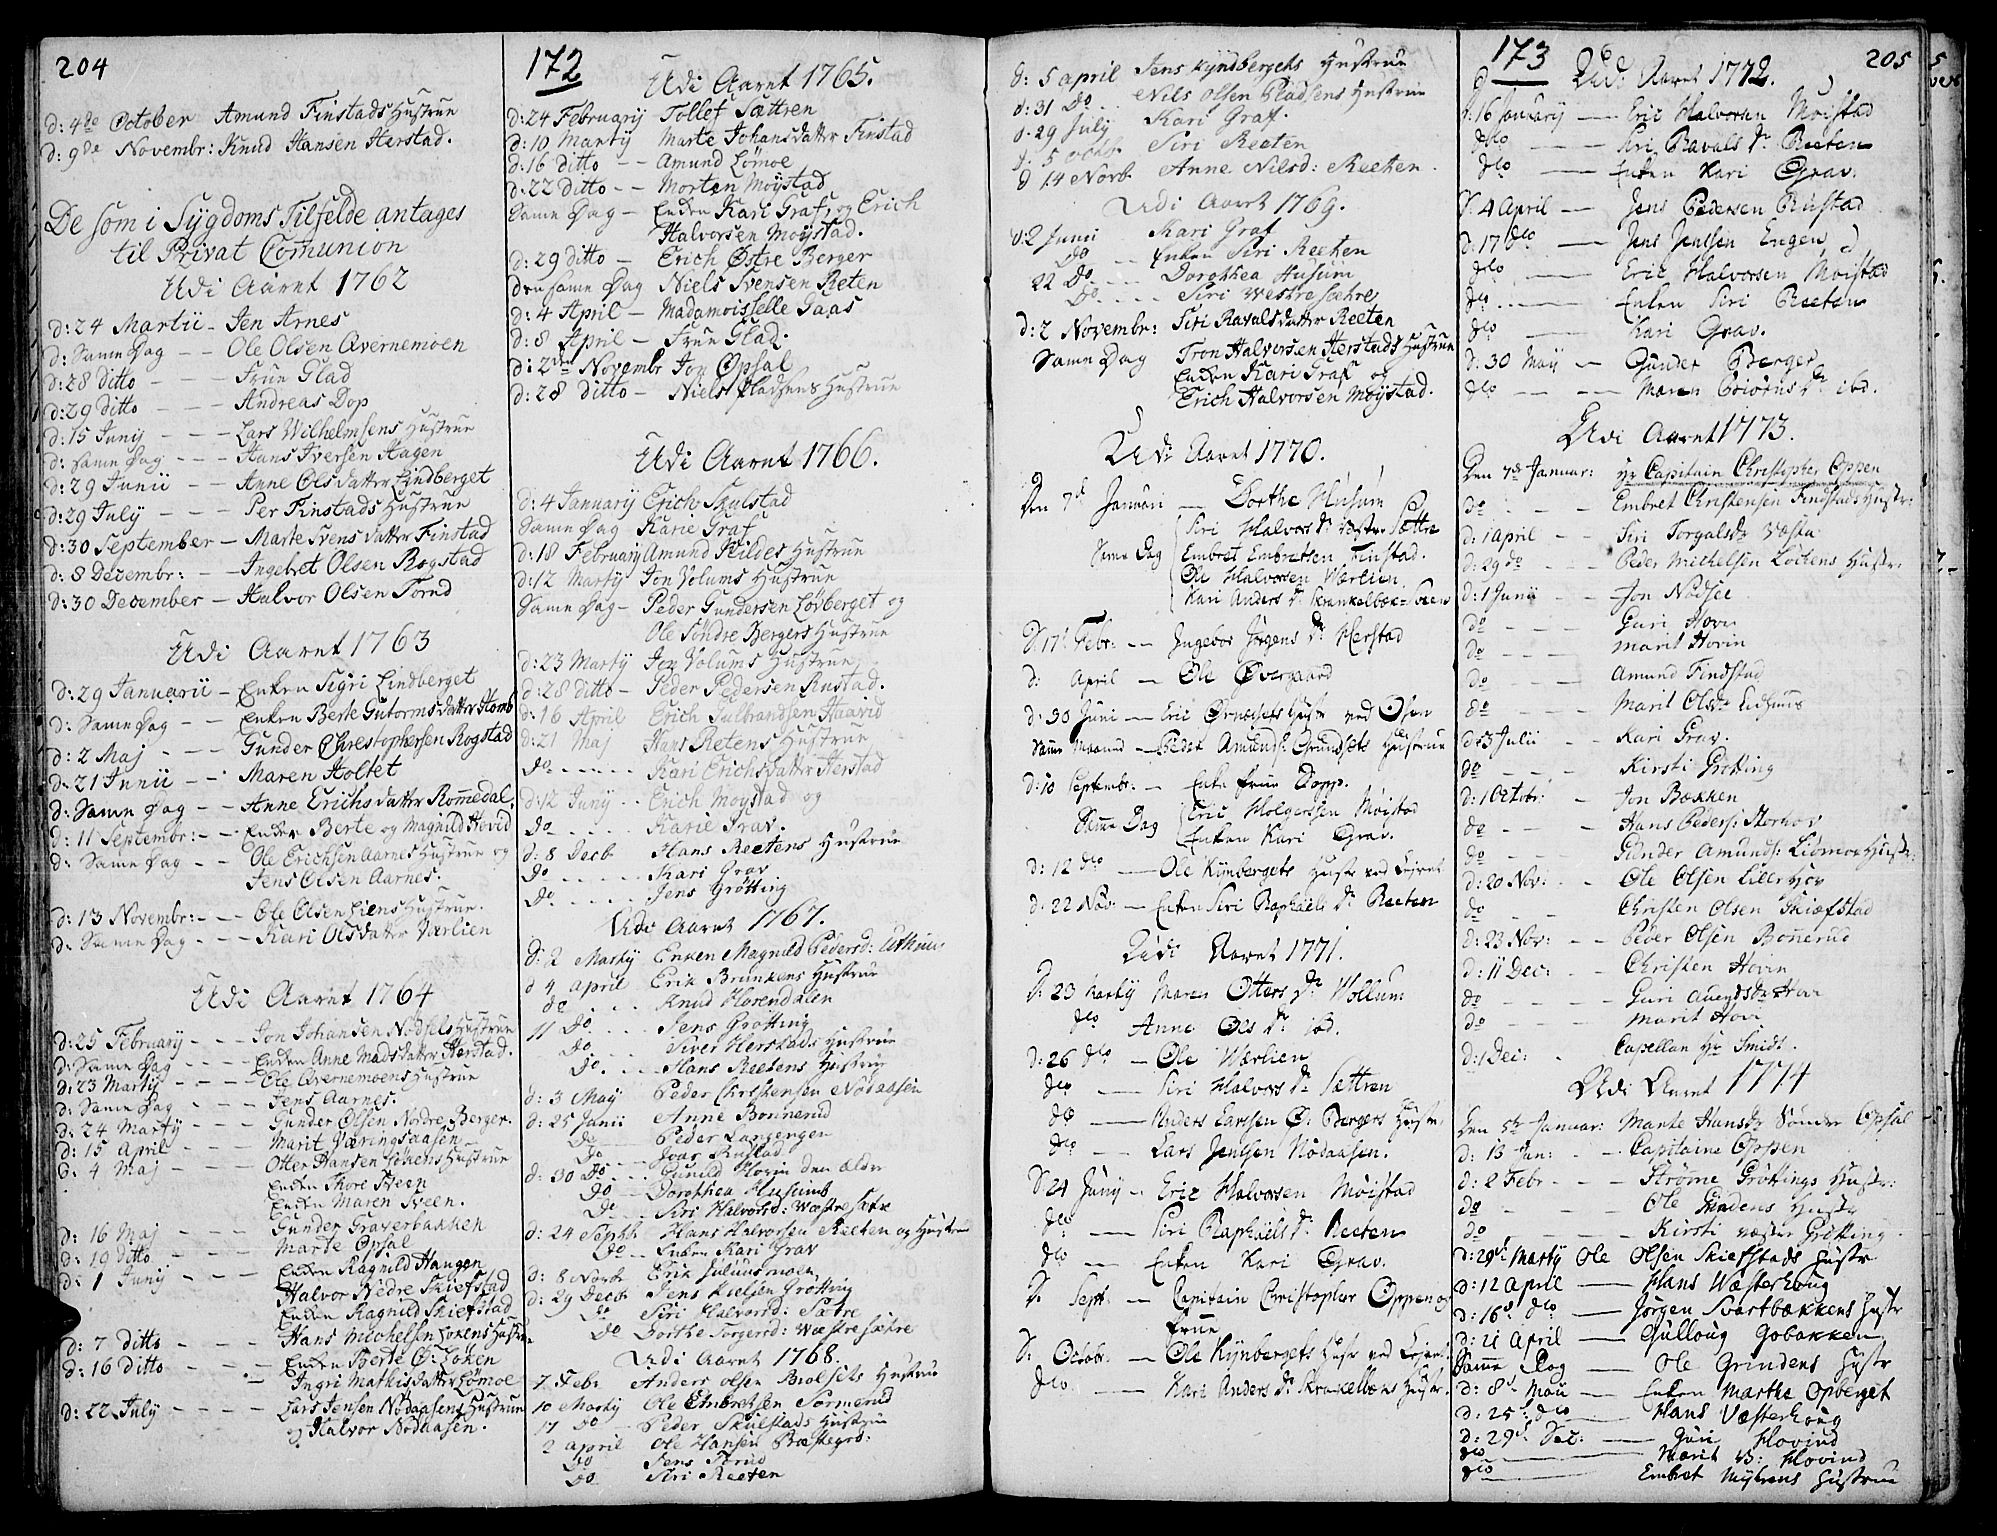 204
d: 4de October Amund Finstads Hustrue
d: 9de Novembr: Knud Hansen Herstad.
De som i Sÿgdoms Tilfelde antages
til Privat Comunion
Udi Aaret 1762
d: 24 Martii - Jen Arnes
d: Samme Dag - - Ole Olsen Qvernemoen
d: 28 ditto - - - Frue Glad
d: 29 ditto - - - Andreas Dop
d: 15 Junij - - - Lars Wilhelmsens Hustrue
d: Samme Dag - - - Hans Iversen Hagen
d: 29 Junii - - - Anne Olsdatter Lindberget
d: 29 Julÿ - - - Per Finstads Hustrue
d: 30 September - Marte Svensdatter Finstad
d: 8 Dezembr: - - Ingebret Olsen Rogstad
d: 30 December - Halvor Olsen Torud
Udi Aaret 1763
d: 29 Januarii - Enken Sigri Lindberget
d: Samme Dag - - Enken Berte Gutormsdatter Homb
d: 2 Maj - - - Gunder Chrestophersen Rogstad
d: 21 Junii - - Maren Holtet
d: Samme Dag - - Anne Erichsdatter Romedal.
d: 11 Septembr: - - Enken Berte og Magnild Hovid
d: Samme Dag - - Ole Erichsen Aarnes Hustrue og
Jens Olsen Aarnes.
d: 13 Novembr: - - - Ole Olsen Liens Hustrue.
d: Samme Dag - - - Kari Olsdatter Værlien
Udi Aaret 1764
d: 25 Februarÿ - - - Jon Johansen Nodsets Hustrue
d: Samme Dag - - - Enken Anne Madsdatter Herstad.
d: 23 Martÿ - - - - Ole Qvernemoens Hustrue
d: Samme Dag - - - Jens Aarnes.
d: 24 Martÿ - - - Gunder Olsen Nordre Berger.
d: 15 April - - - Marit Væringsaasen
d: 4 Maj - - - Otter Hansen Hustrue
Enken Thore Sveen
Enken Maren Sveen.
d: 16 Maj - - - Gunder Graverbakken
d: 19 ditto - - - Marte Opsal
d: 1 Junij - - - Enken Ragnild Haugen
Halvor Nedre Skiefstad
Enken Ragnild Skiefstad
d: 7 ditto - - - Hans Michelsen Lokens Hustrue
d: 16 ditto - - - Enken Berte Ø: Loken
Ingri Mathisdatter Lomoe
d: 22 Julÿ - - - - Lars Jensen Nodaasens Hustrue
og Halvor Nodaasen.
172
Udi Aaret 1765.
d: 24 Februarij Tollef Sættren
d: 10 Martÿ Marte Johansdatter Finstad
d: 16 ditto - - Amund Lømoe
d: 22 ditto - - Morten Moÿstad
Samme Dag - Enken Kari Graf, og Erich
Halvorsen Moÿstad.
d: 29 ditto - Erich Østre Berger
den samme Dag Niels Svensen Reten
d: 4 April - Madamoisselle Gaas
d: 8 April - Frue Glad.
d: 2den Novembr Jon Opsal
d: 28 ditto - Niels Pladsens Hustrue
Udi Aaret 1766.
d: 4 Januarij Erich Skulstad
Samme Dag Karie Graf
d: 18 Februarij Amund Kildes Hustrue
d: 12 Martÿ Jon Volums Hustrue
Samme Dag - Peder Gundersen Lövberget og
Ole Söndre Bergers Hustrue
d: 23 Martÿ Jon Volums Hustrue
d: 28 ditto - Peder Pedersen Rustad.
d: 16 April Erich Gulbrandsen Haavid
d: 21 Maj Hans Retens Hustrue
Do - - - - - Kari Erichsdatter Herstad
d: 12 Junij - - Erich Moystad og
Do - - - - Karie Grav.
d: 8 Decb Hans Reetens Hustrue
Do - - - - Kari Grav
Do - - - - Jens Grötting
Udi Aaret 1767.
d: 2 Martÿ Enken Magnild Pedersd:
d 4 April Erik Brunkens Hustrue
do - - - Knud Horendalen
11 Do - - - Jens Grötting
Do - - - Siver Herstads Hustrue
Do - - - Hans Reetens Hustrue
d: 3 Maÿ Peder Christensen Nodaasen
d: 25 Junii Anne Bonnerud
Do - - Peder Langengen
Do - - Ivar Rustad
d: 30 Do - - Gunild Hovin den ældre
Do - - Dorothea Husums
Do - - Siri Halvorsd: Westresætre
d: 24 Septb Hans Halvorsen Reeten og Hustrue
Do - - Enken Kari Grav
d: 8 Novb Erik Julusmoen
d: 29 Decb Jens Nielsen Grötting
do Siri Halvorsd: Sætre
Do Dorthe Torgersd: Westresætre
Udi Aaret 1768.
7 Febr Anders Olsen Biolsets Hustrue
10 Martÿ Ole Embretsen Sormerud
17 Do - - Peder Skulstads Hustrue
2 April Ole Hansen Bæckegrd:
Do Jens Torud
Do Siri Reeten
d: 5 April Jens Kÿndbergets Hustrue
d: 31 Do - - Nils Olsen Pladsens Hustrue
d. 29 Julÿ Kari Graf.
d. 5 Octbr. Siri Reeten
d 14 Novb. Anne Nilsd: Reeten.
Udi Aaret 1769.
d: 2 Junii Kari Graf
Do - - Enken Siri Reeten
22 Do - - Dorothea Husum
Do - - - - Siri Westresætre
d: 2 Novembr: Siri Ravalsdatter Reeten
Samme Dag Tron Halvorsen Herstads Hustrue
Enken Kari Graf og
Erich Halvorsen Moystad.
Udi Aaret 1770.
Den 7d Januari - Dorthe Husum
Siri Halvorsdr. Vester Sættre
Samme Dag Embret Embretsen Finstad.
Ole Halvorsen Værlien.
Kari Andersdr. Krankelbæk-Sveen
d. 17 Febr. - - Ingebor Jörgens dr. Herstad
d: April - Ole Øvergaard
d: 30 Juni - - Eric Ørnæsets Hustr ved Osen
Samme Maaned - Peder Amunds: Grundsets Hustrue
d: 10 Septembr. - Enke Frue Dopp.
Samme Dag Eric Holgersen Möistad
Enken Kari Grav.
d: 12 dto - Ole Kÿnbergets Hustr ved Lejret
d. 22 Nov. - Enken Siri Raphaels dr. Reeten
Udi Aaret 1771.
d. 23 Martÿ Maren Otters dr. Vollum
dto Anne Ols dr. ibd.
d: 26 dto - Ole Værlien
dto - Siri Halvors dr. Sættren
dto - Anders Larsen Ø. Bergers Hustr.
dto - Lars Jensen Nodaasen.
d 24 Junÿ - Eric Halvorsen Möistad
dto - Siri Raphaëls dr. Reeten
dto - Enken Kari Grav.
d. Sept. - Capitain Christopher Oppen og
Frue
d. Octobr. - Ole Kÿnbergets Hustr ved Lejret
dto - Kari Anders dr. Krakelbæks Hustr.
173
205
Udi Aaret 1772.
d. 16 Januarij - Eric Halvorsen Moistad
dto - - Siri Ravals dr. Reeten
dto - Enken Kari Grav.
d. 4 April - Jens Pedersen Rustad
d: 17 dto - Jens Jensen Engen
dto - - Eric Halvorsen Moistad
dto - - Enken Siri Reeten
dto - Kari Grav.
d. 30 Maij - Gunder Berger
dto - - Maren Biörns dr. ibd.
Udi Aaret 1773.
Den 7de Januar: Hr Capitain Christopher Oppen
do - - Embret Christensen Findstads Hustr:
d: 1 April - - Siri Torgalsdr Væsta
d: 29 do - - Peder Michelsen Löckens Hustr.
d: 1 Junii - - Jon Nodset
do - - - Guri Hovin
do - - - Marit Hovin
do - - - Amund Findstad
do - - - Marit Olsdr
d: 3 Julii - - Kari Grav.
do - - - Kirsti Grötting
d: 1 Octobr: - Jon Bækken
do - - - Hans Peders: Storhov
do - - - Gunder Amunds: Liömoe Hustr:
d: 20 Nov: - - Ole Olsen Lillehov
do - - Christen Olsen Skiefstad
d: 23 Nov: - - Peder Olsen Bonnerud
d: 11 Dec: - - Christen Hovin
do - - - Guri Hovi
do - - - Marit Hovi
d: 1 Dec: - Capellan Hr Smidt.
Udi Aaret 1774
Den 5te Januar: Marte Hansdr Sönder Opsal
d: 13 Jan: - - Capitaine Oppen
d: 2 Febr - - - Strömme Gröttings Hustr:
do - - - Ole Grindens Hustr
do - - - Kirsti vester Grötting.
d: 29de Martÿ Ole Olsen Skiefstads Hustr
d: 12 April - Hans Wæsterhoug
d: 16d dto - Jörgen Svartbækkens Hustr
d: 21 April - Gulloug Gobakken
Samme Dag - Ole Grindens Hustr
d: 8d Maii - Enken Marthe Opberget
d: 25de dto - Hans Væsterhoug
d: 29d Dec: - Guri Hovind
dto - Marit Hovind
dto - Embret Myhrens Hustrue